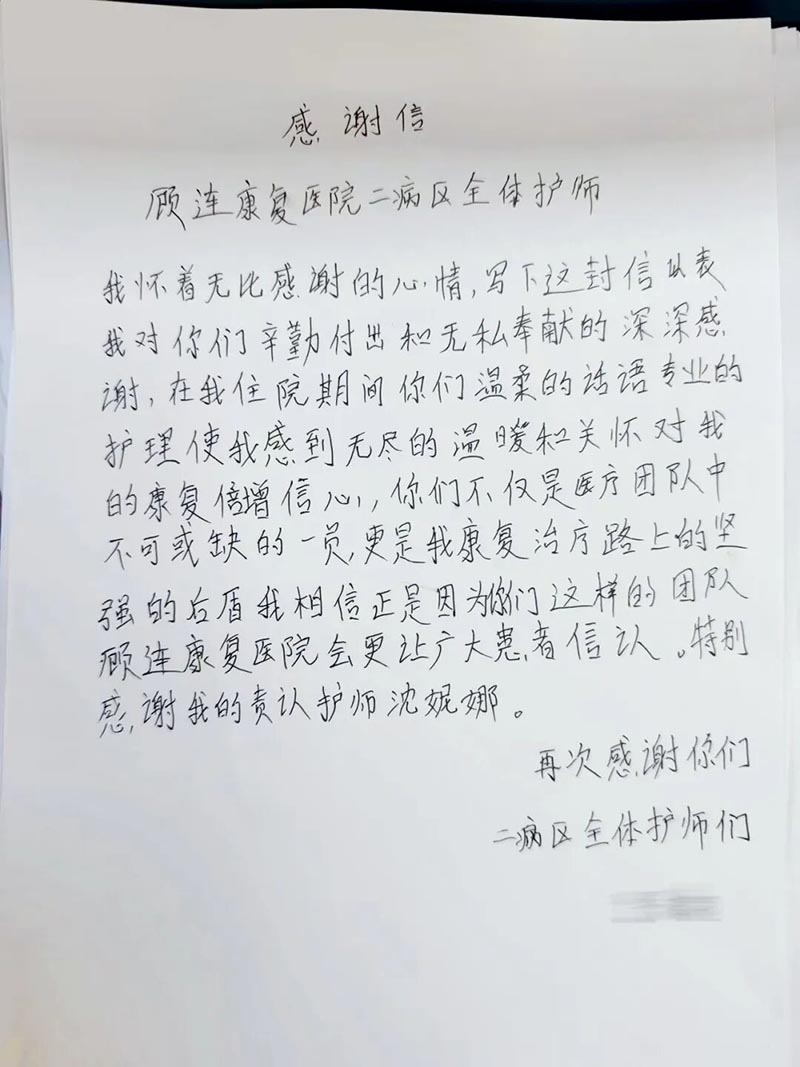 感谢信
顾连康复医院二病区全体护师
我怀着无比感谢的心情,写下这封信以表
我对你们辛勤付出和无私奉献的深深感
谢,在我住院期间你们温柔的话语专业的
护理使我感到无尽的温暖和关怀对我
的康复倍增信心,,你们不仅是医疗团队中
不可或缺的一员,更是我康复治疗路上的坚
强的后盾我相信正是因为你们这样的团队
顾连康复医院会更让广大患者信认。特别
感谢我的责认护师沈妮娜。
再次感谢你们
二病区全体护师们